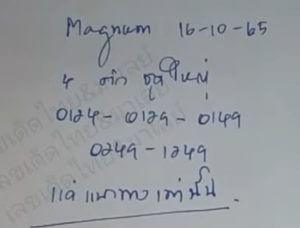 Magnum 16-10-65
4 ตัว ชุดใหญ่
0124 - 0129 - 0149
0249 - 1249
แค่แนวทางเท่านั้น